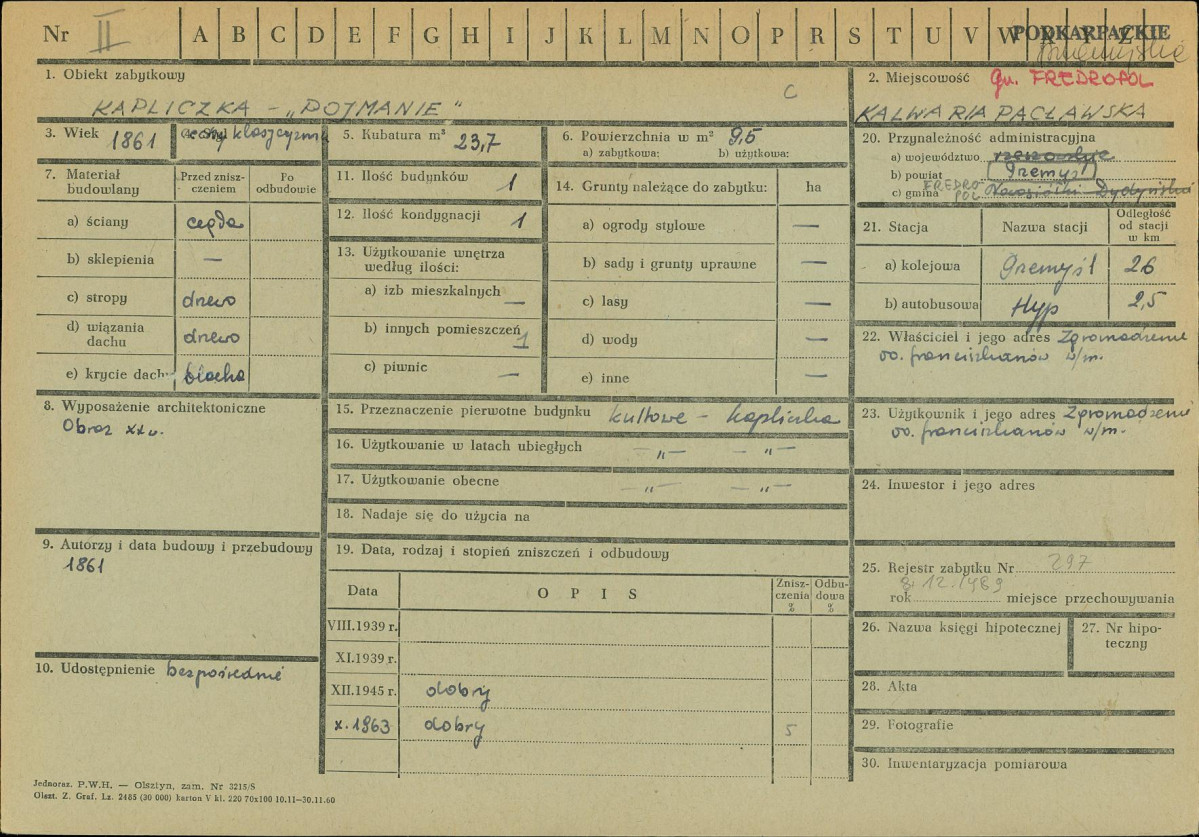 Nr II A B C D E F G H I J K L M N O P R S T U V W X Y Z
PODKARPACKIE
przemyskie
1. Obiekt zabytkowy
KAPLICZKA - „POJMANIE"
C
2. Miejscowość gm. FREDROPOL
KALWARIA PACŁAWSKA
3. Wiek 1861
cechy klasycyzmu
5. Kubatura m³ 23,7
6. Powierzchnia w m² 9,5
a) zabytkowa: b) użytkowa:
20. Przynależność administracyjna
a) województwo rzeszowskie
b) powiat Przemyśl
c) gmina FREDROPOL Nowosiółki Dydyńskie
7. Materiał budowlany
Przed zniszczeniem
Po odbudowie
a) ściany cegła
b) sklepienia —
c) stropy drewo
d) wiązania dachu drewo
e) krycie dachu blacha
11. Ilość budynków 1
12. Ilość kondygnacji 1
13. Użytkowanie wnętrza
według ilości:
a) izb mieszkalnych —
b) innych pomieszczeń 1
c) piwnic —
14. Grunty należące do zabytku: ha
a) ogrody stylowe —
b) sady i grunty uprawne —
c) lasy —
d) wody —
e) inne —
21. Stacja
Nazwa stacji
Odległość od stacji w km
a) kolejowa Przemyśl 26
b) autobusowa Hyp 2,5
22. Właściciel i jego adres Zgromadzenie
oo. franciszkanów w/m.
8. Wyposażenie architektoniczne
Obraz XX w.
15. Przeznaczenie pierwotne budynku kultowe - kapliczka
16. Użytkowanie w latach ubiegłych —„— —„—
17. Użytkowanie obecne —„— —„—
18. Nadaje się do użycia na
23. Użytkownik i jego adres Zgromadzenie
oo. franciszkanów w/m.
24. Inwestor i jego adres
9. Autorzy i data budowy i przebudowy
1861
19. Data, rodzaj i stopień zniszczeń i odbudowy
Data
O P I S
Zniszczenia %
Odbudowa %
VIII.1939 r.
XI.1939 r.
XII.1945 r. dobry
X. 1963 dobry 5
25. Rejestr zabytku Nr 297
8.12.1989
rok miejsce przechowywania
26. Nazwa księgi hipotecznej
27. Nr hipoteczny
10. Udostępnienie bezpośrednie
28. Akta
29. Fotografie
30. Inwentaryzacja pomiarowa
Jednoraz. P.W.H. — Olsztyn, zam. Nr 3215/S
Olszt. Z. Graf. Lz. 2485 (30 000) karton V kl. 220 70x100 10.11—30.11.60